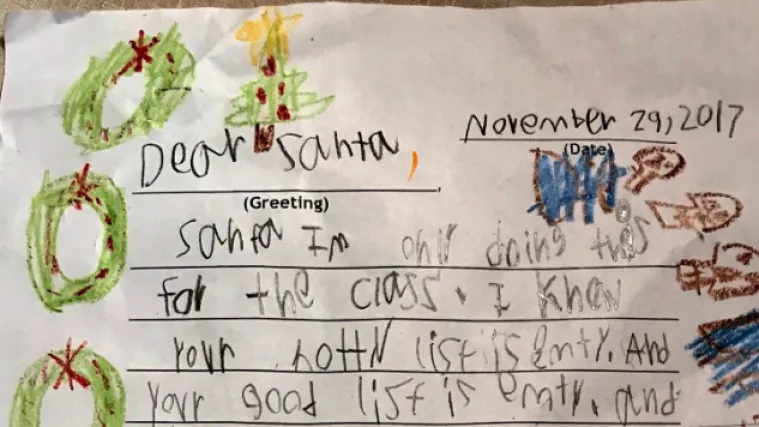 November 29, 2017
(Date)
Dear Santa,
(Greeting)
Santa Im only doing this
for the class. I know
your notty list is Emty. And
your good list is emty. and